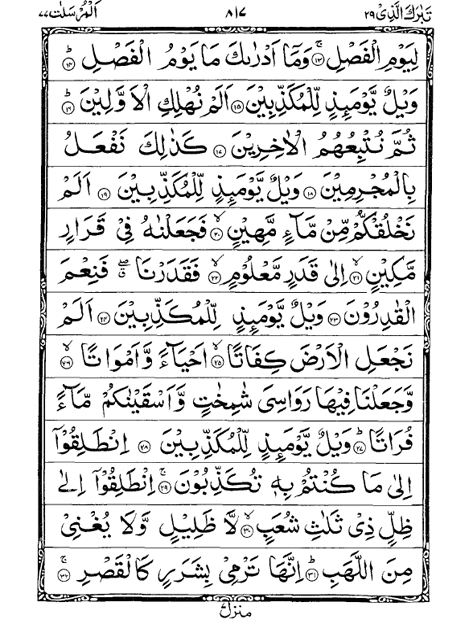 تَبٰرَكَ الَّذِیْ ٢٩ ٨١٧ اَلْمُرْسَلٰت ٧٧
لِیَوْمِ الْفَصْلِ ۚ﴿۱۳﴾ وَمَاۤ اَدْرٰىكَ مَا یَوْمُ الْفَصْلِ ؕ﴿۱۴﴾
وَیْلٌ یَّوْمَىِٕذٍ لِّلْمُكَذِّبِیْنَ ﴿۱۵﴾ اَلَمْ نُهْلِكِ الْاَوَّلِیْنَ ؕ﴿۱۶﴾
ثُمَّ نُتْبِعُهُمُ الْاٰخِرِیْنَ ﴿۱۷﴾ كَذٰلِكَ نَفْعَلُ
بِالْمُجْرِمِیْنَ ﴿۱۸﴾ وَیْلٌ یَّوْمَىِٕذٍ لِّلْمُكَذِّبِیْنَ ﴿۱۹﴾ اَلَمْ
نَخْلُقْكُّمْ مِّنْ مَّآءٍ مَّهِیْنٍ ۙ﴿۲۰﴾ فَجَعَلْنٰهُ فِیْ قَرَارٍ
مَّكِیْنٍ ۙ﴿۲۱﴾ اِلٰى قَدَرٍ مَّعْلُوْمٍ ۙ﴿۲۲﴾ فَقَدَرْنَا ۖۗ فَنِعْمَ
الْقٰدِرُوْنَ ﴿۲۳﴾ وَیْلٌ یَّوْمَىِٕذٍ لِّلْمُكَذِّبِیْنَ ﴿۲۴﴾ اَلَمْ
نَجْعَلِ الْاَرْضَ كِفَاتًا ۙ﴿۲۵﴾ اَحْیَآءً وَّاَمْوَاتًا ۙ﴿۲۶﴾
وَّجَعَلْنَا فِیْهَا رَوَاسِیَ شٰمِخٰتٍ وَّاَسْقَیْنٰكُمْ مَّآءً
فُرَاتًا ؕ﴿۲۷﴾ وَیْلٌ یَّوْمَىِٕذٍ لِّلْمُكَذِّبِیْنَ ﴿۲۸﴾ اِنْطَلِقُوْۤا
اِلٰى مَا كُنْتُمْ بِهٖ تُكَذِّبُوْنَ ۚ﴿۲۹﴾ اِنْطَلِقُوْۤا اِلٰى
ظِلٍّ ذِیْ ثَلٰثِ شُعَبٍ ۙ﴿۳۰﴾ لَّا ظَلِیْلٍ وَّلَا یُغْنِیْ
مِنَ اللَّهَبِ ؕ﴿۳۱﴾ اِنَّهَا تَرْمِیْ بِشَرَرٍ كَالْقَصْرِ ۚ﴿۳۲﴾
منزل